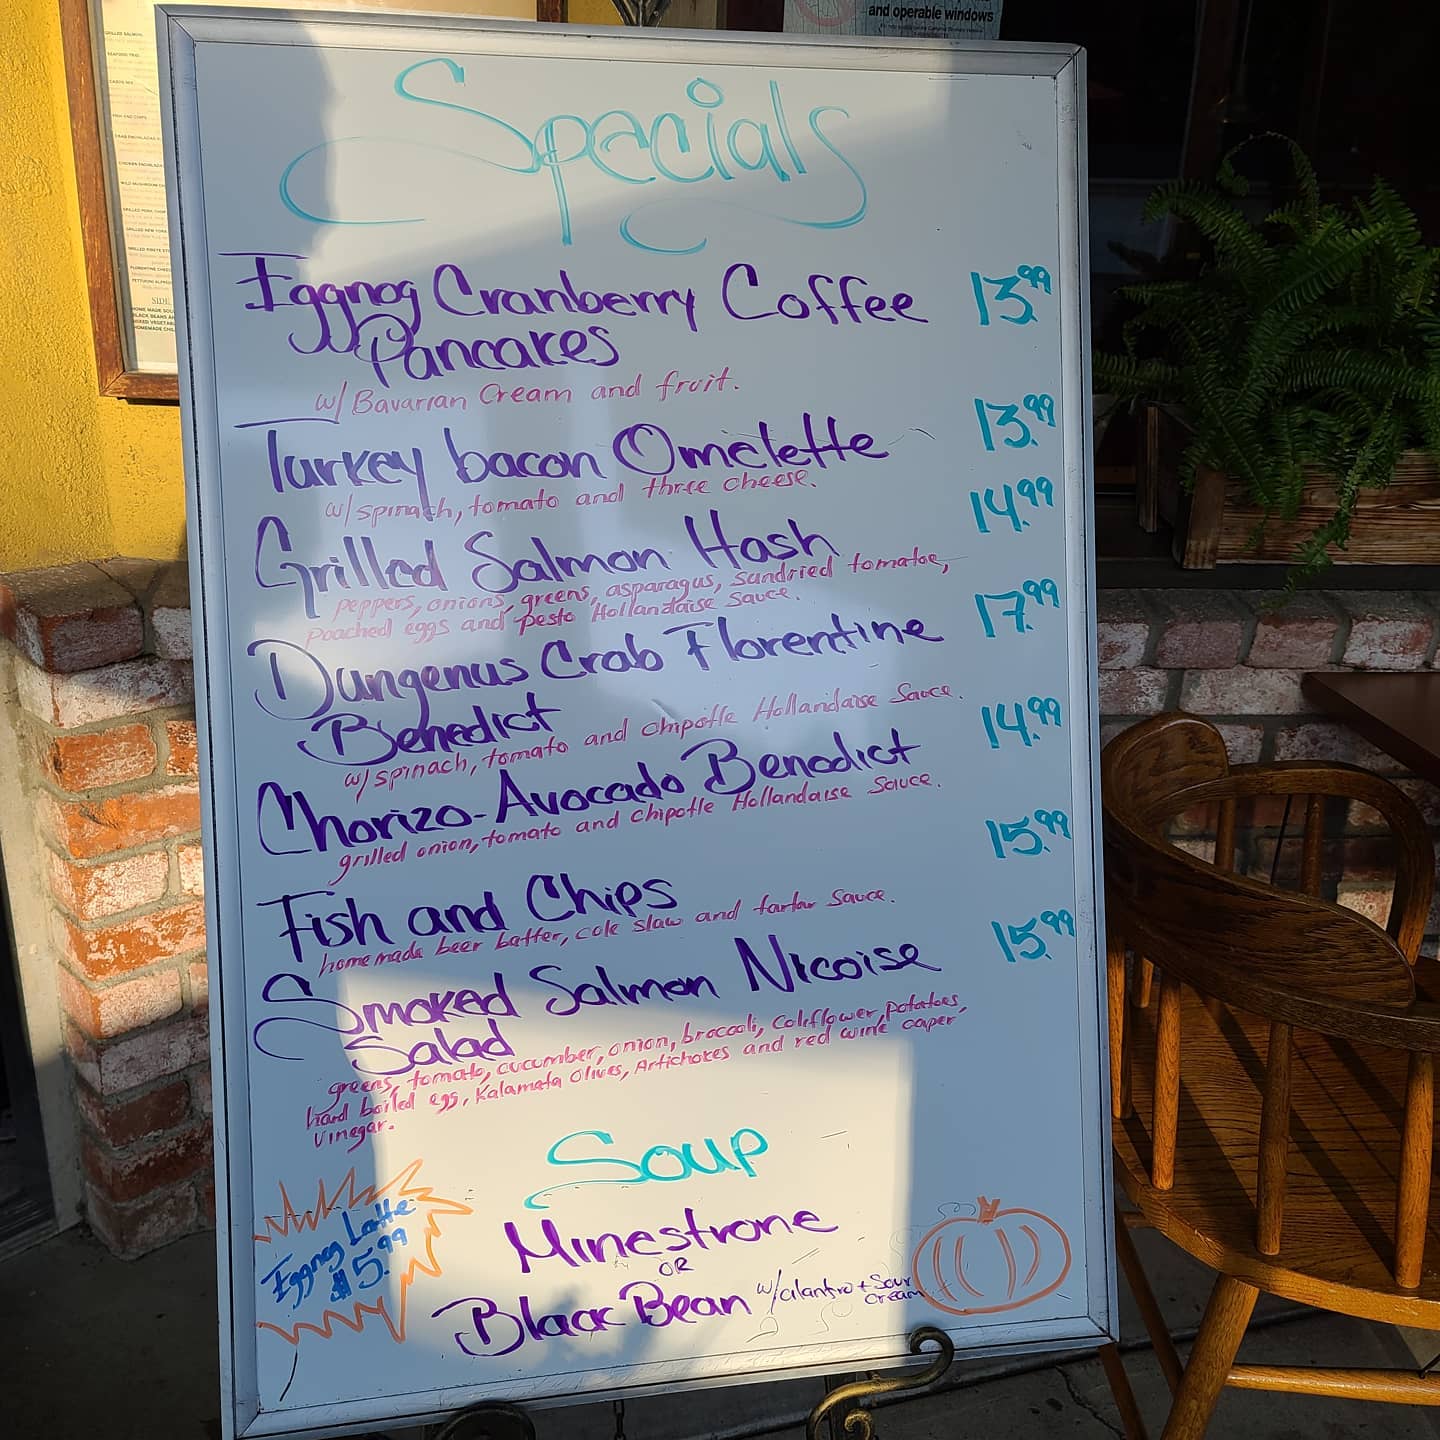 and operable windows
Specials
Eggnog Cranberry Coffee 13.99
Pancakes
w/ Bavarian Cream and fruit.
Turkey bacon Omelette 13.99
w/ spinach, tomato and three cheese.
Grilled Salmon Hash 14.99
peppers, onions, greens, asparagus, sundried tomatoe,
poached eggs and pesto Hollandaise sauce.
Dungenus Crab Florentine 17.99
Benedict
w/ spinach, tomato and chipotle Hollandaise Sauce.
Chorizo-Avocado Benedict 14.99
grilled onion, tomato and chipotle Hollandaise Sauce.
Fish and Chips 15.99
homemade beer batter, cole slaw and tartar sauce.
Smoked Salmon Nicoise 15.99
Salad
greens, tomato, cucumber, onion, broccoli, coliflower, potatoes,
hard boiled egg, Kalamata Olives, Artichokes and red wine caper
vinegar.
Soup
Minestrone
OR
Black Bean w/ cilantro + Sour
Cream
Eggnog Latte
$5.99
FISH AND CHIPS
SIDE